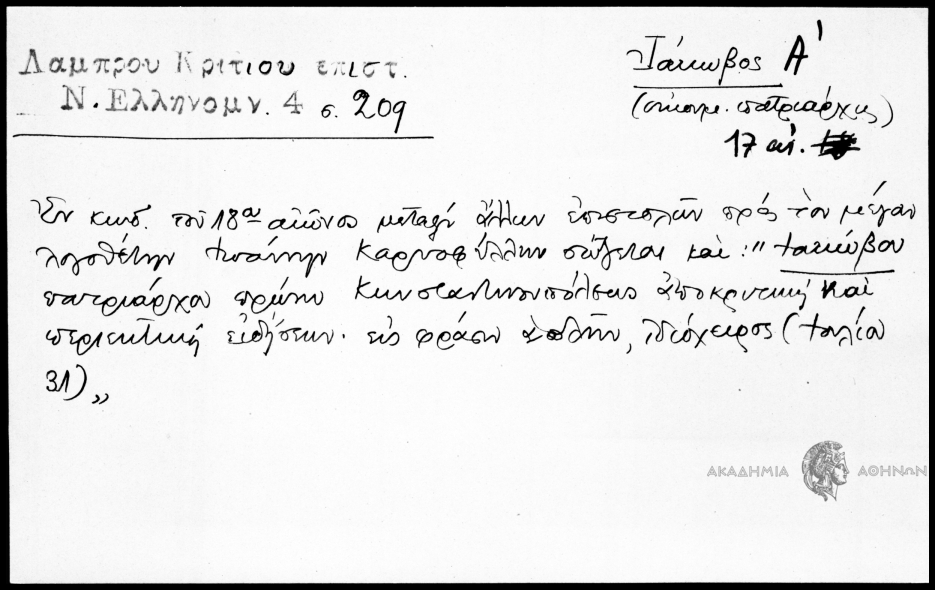 Λαμπρου Κριτιου επιστ.
Ν. Ελληνομν. 4 σ. 209
Ἰάκωβος Α'
(οἰκουμ. πατριάρχης)
17 αἰ.
Ἐν κωδ. τοῦ 18ου αἰῶνος μεταξὺ ἄλλων ἐπιστολῶν πρὸς τὸν μέγαν
λογοθέτην Ἰωάννην Καρυοφύλλην σῴζεται καὶ: "Ἰακώβου
πατριάρχου πρώην Κωνσταντινουπόλεως ἀποκριτικὴ καὶ
περιεκτικὴ εἰδήσεων. εἰς φράσιν ἁπλῆν, ἰδιόχειρος (Ἰουλίου
31)„
ΑΚΑΔΗΜΙΑ ΑΘΗΝΩΝ